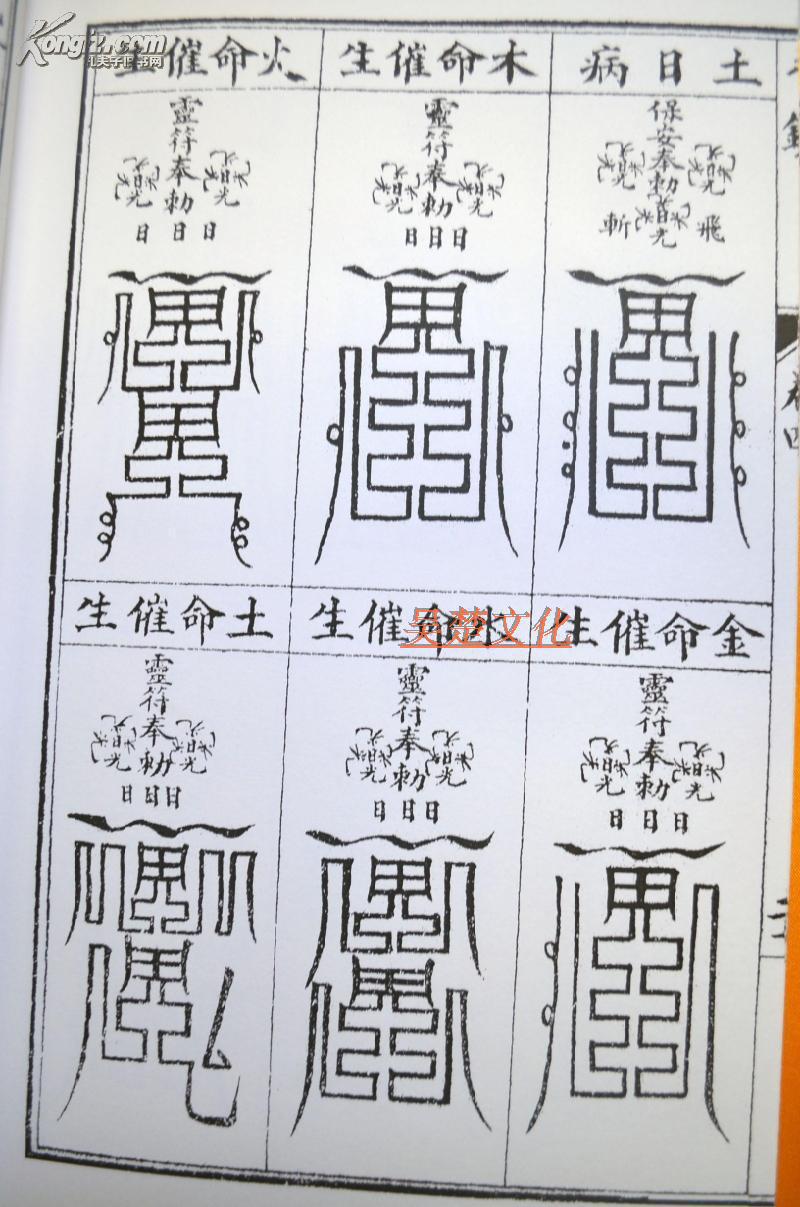 Kongfz.com
孔夫子旧书网
土日病
保安奉勅
飛
斬
木命催生
靈符奉勅
日日日
火命催生
靈符奉勅
日日日
金命催生
靈符奉勅
日日日
水命催生
靈符奉勅
日日日
土命催生
靈符奉勅
日日日
卷四
吴楚文化